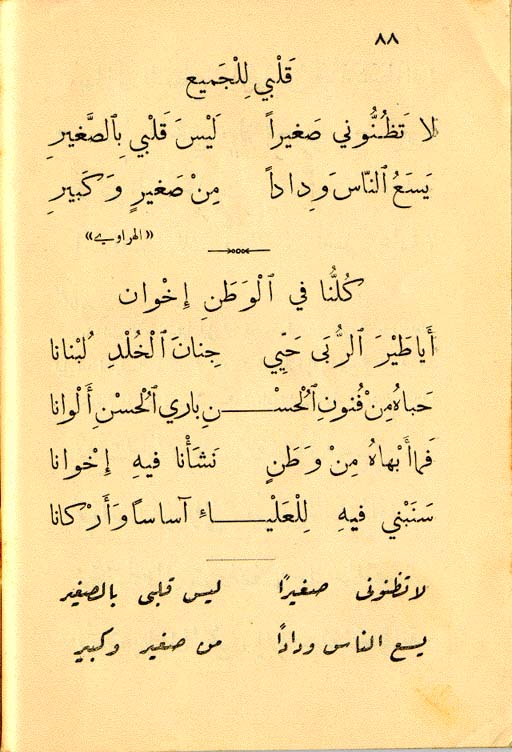 ٨٨
قَلْبي لِلْجَميع
لا تَظُنُّوني صَغيراً لَيْسَ قَلْبي بِالصَّغيرِ
يَسَعُ النّاسَ وِداداً مِنْ صَغيرٍ وَ كَبيرِ
«الهراوي»
كُلُّنا في الْوَطَنِ إِخْوان
أَيا طَيْرَ الرُّبَى حَيِّي جِنانَ الْخُلْدِ لُبْنانا
حَباهُ مِنْ فُنونِ الْحُسْـــنِ باري الْحُسْنِ أَلْوانا
فَما أَبْهاهُ مِنْ وَطَنٍ نَشَأْنا فيهِ إِخْوانا
سَنَبْني فيهِ لِلْعَلْيـــاءِ آساساً وَأَرْكانا
لا تظنونى صغيرًا ليس قلبى بالصغير
يسع الناس ودادًا من صغير وكبير